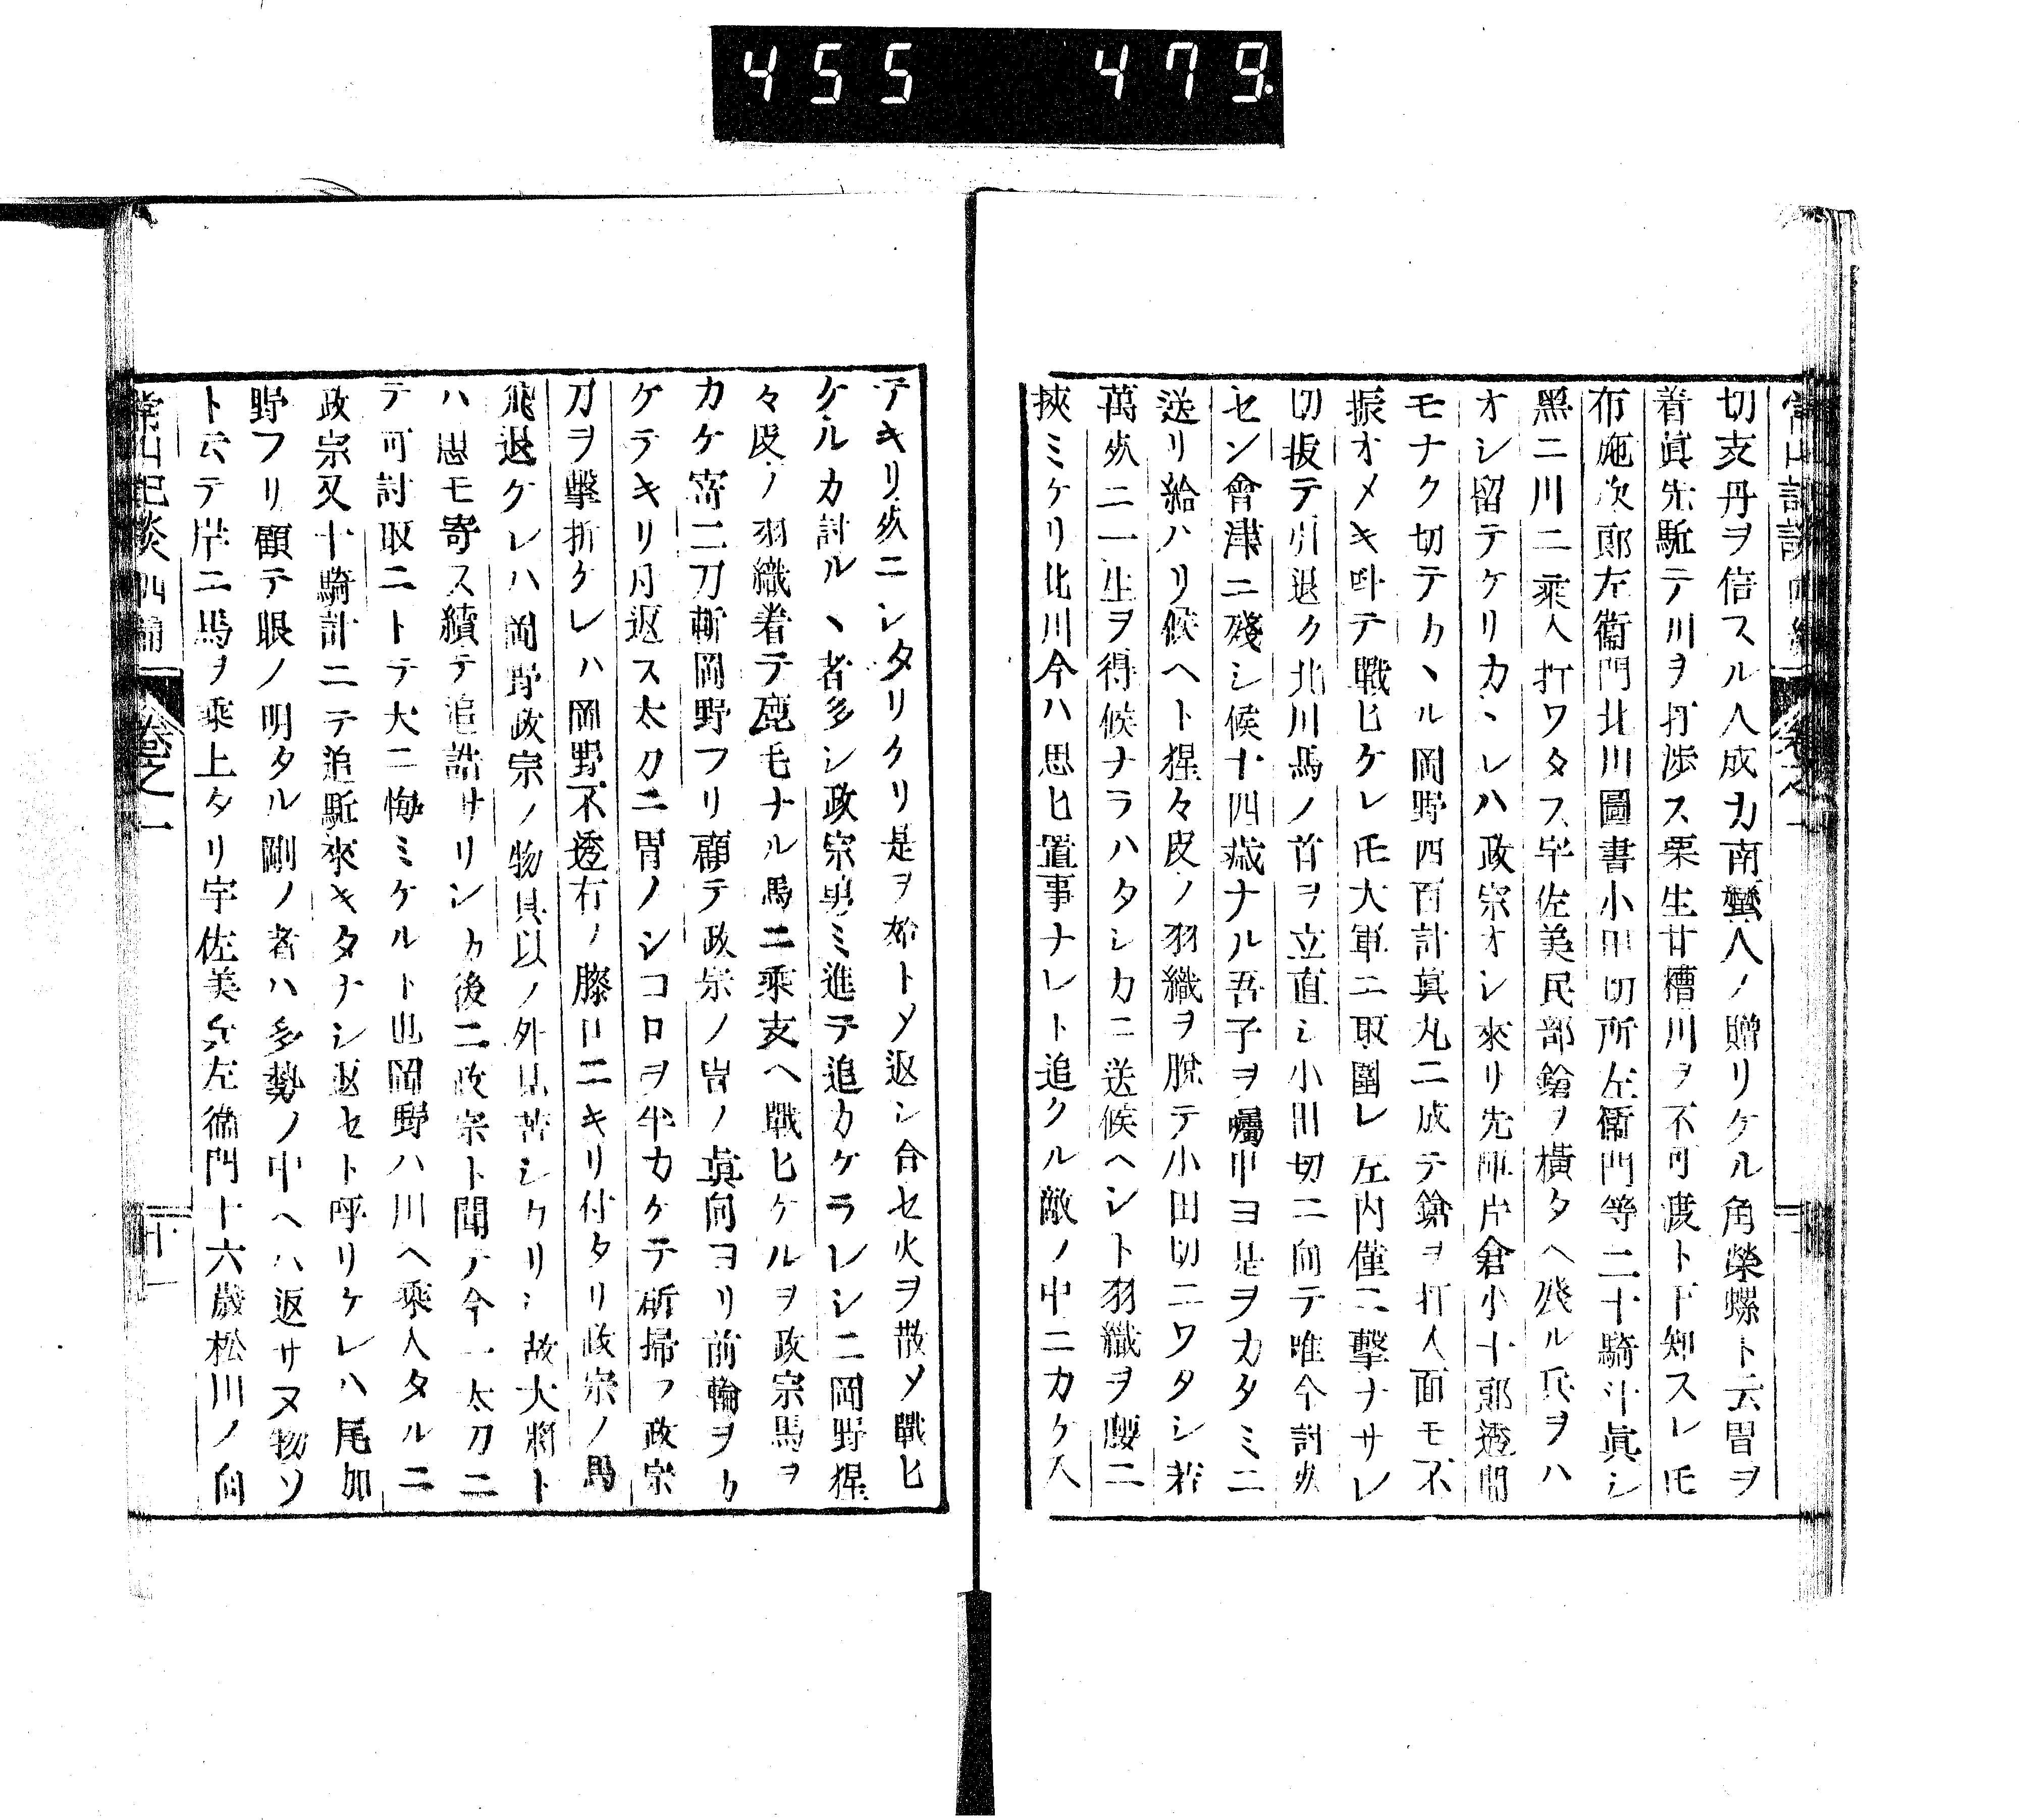 455 479
切支丹ヲ信スル人成カ南蠻人ノ贈リケル角榮螺ト云冑ヲ
着眞先駈テ川ヲ打渉ス栗生甘槽川ヲ不可渡ト下知スレ𪜈
布施次郎左衞門北川圖書小田切所左衞門等二十騎計眞シ
黑ニ川ニ乘入打ワタス宇佐美民部鎗ヲ横タヘ殘ル兵ヲハ
オシ留テケリカヽレハ政宗オシ來リ先陣片倉小十郎透間
モナク切テカヽル岡野四百計眞丸ニ成テ鎗ヲ打入面モ不
振オメキ叫テ戰ヒケレ𪜈大軍ニ取圍レ左内僅ニ撃ナサレ
切拔テ引退ク北川馬ノ首ヲ立直シ小田切ニ向テ唯今討死
セン會津ニ殘シ候十四歳ナル吾子ヲ囑申ヨ是ヲカタミニ
送リ給ハリ候ヘト猩々皮ノ羽織ヲ脫テ小田切ニワタシ若
萬死ニ一生ヲ得候ナラハタシカニ送候ヘシト羽織ヲ腰ニ
挾ミケリ北川今ハ思ヒ置事ナレト追クル敵ノ中ニカケ入
テキリ死ニシタリケリ是ヲ始トメ返シ合セ火ヲ散メ戰ヒ
ケルカ討ルヽ者多シ政宗勇ミ進テ追カケラレシニ岡野猩
々皮ノ羽織着テ鹿毛ナル馬ニ乘支ヘ戰ヒケルヲ政宗馬ヲ
カケ寄二刀斬岡野フリ顧テ政宗ノ冑ノ眞向ヨリ前輪ヲカ
ケテキリ月返ス太刀ニ冑ノシコロヲ半カケテ斫掃フ政宗
刀ヲ撃折ケレハ岡野不透右ノ膝口ニキリ付タリ政宗ノ馬
飛退ケレハ岡野政宗ノ物具以ノ外見苦シケリシ故大將ト
ハ思モ寄ス續テ追詰サリシカ後ニ政宗ト聞テ今一太刀ニ
テ可討取ニトテ大ニ悔ミケルト也岡野ハ川ヘ乘入タルニ
政宗又十騎計ニテ追駈來キタナシ返セト呼リケレハ尾加
野フリ顧テ眼ノ明タル剛ノ者ハ多勢ノ中ヘハ返サヌ物ソ
ト云テ岸ニ馬ヲ乘上タリ宇佐美兵左衞門十六歳松川ノ向
常山紀談 四編 卷之一 十一